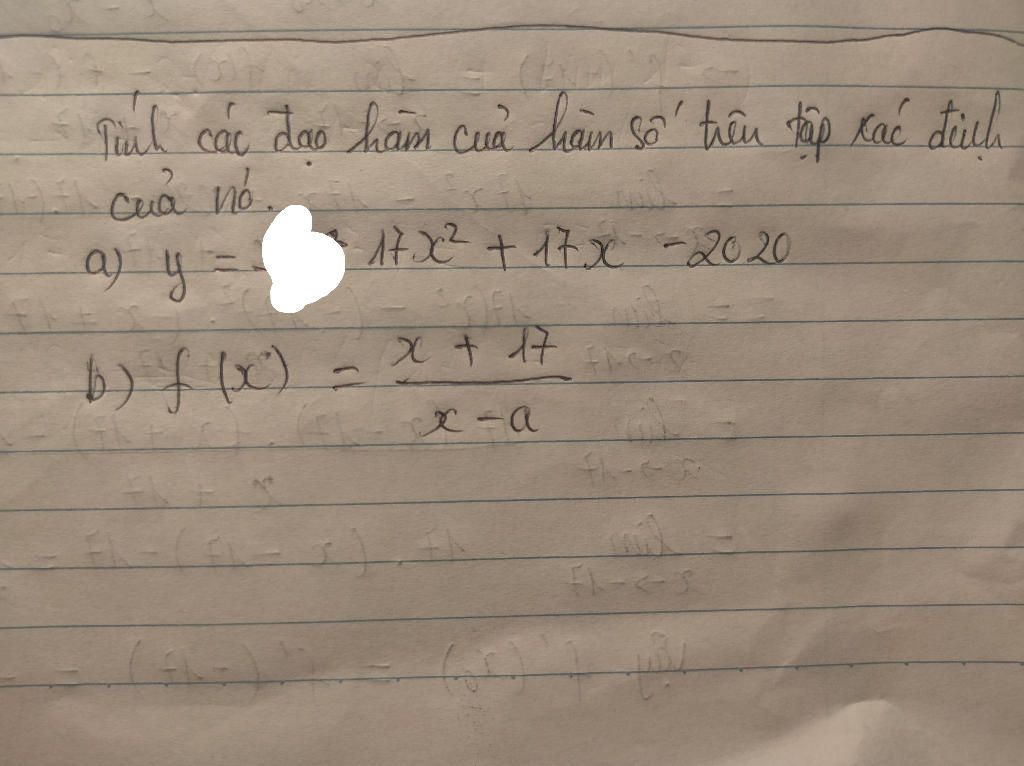 Tính các đạo hàm của hàm số trên tập xác định
của nó.
a) y = 17x² + 17x - 2020
b) f(x) = x + 17
x - a